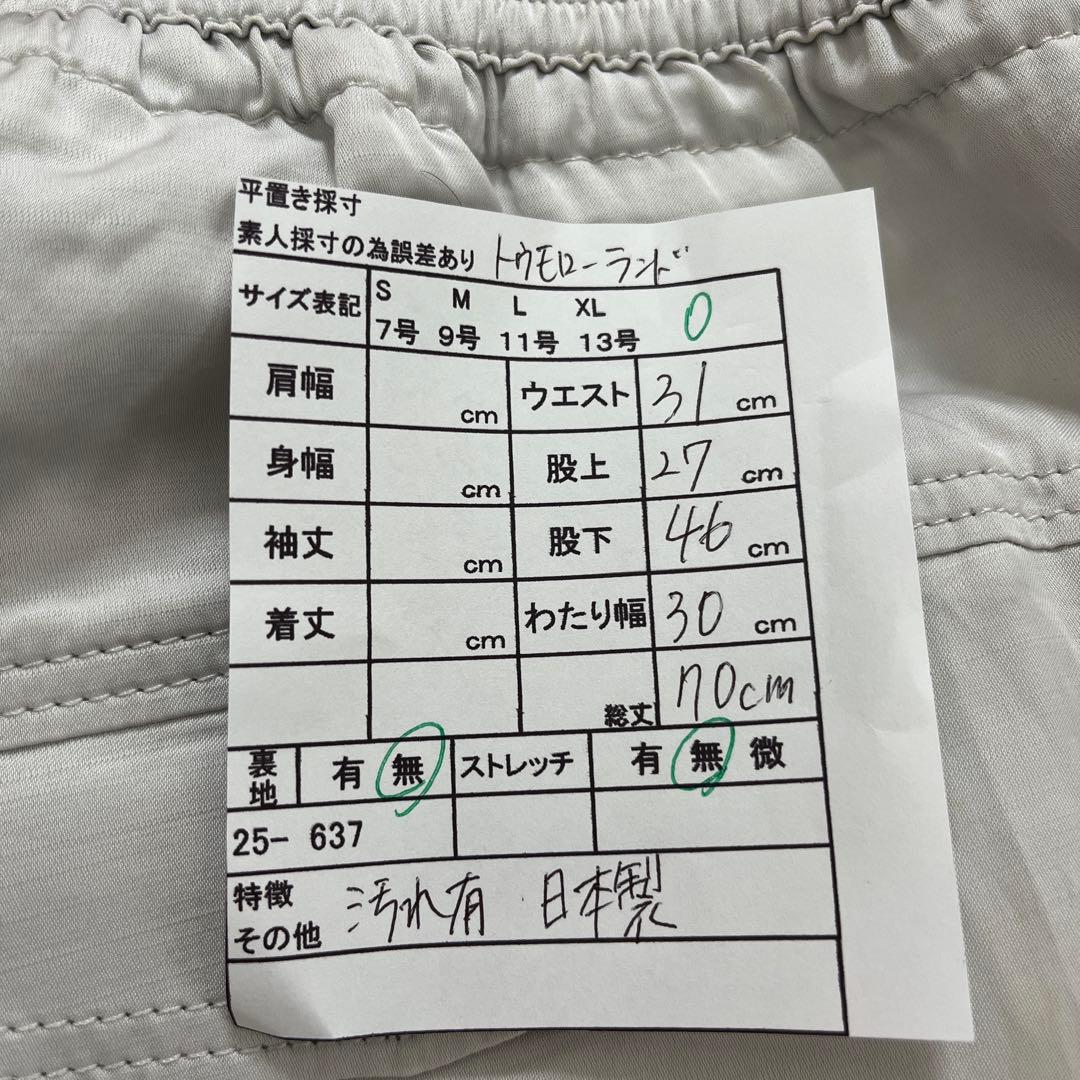 平置き採寸
素人採寸の為誤差あり トゥモローランド
サイズ表記 S M L XL 0
7号 9号 11号 13号
肩幅 cm ウエスト 31 cm
身幅 cm 股上 27 cm
袖丈 cm 股下 46 cm
着丈 cm わたり幅 30 cm
総丈 70cm
裏地 有 無 ストレッチ 有 無 微
25- 637
特徴 その他 汚れ有 日本製